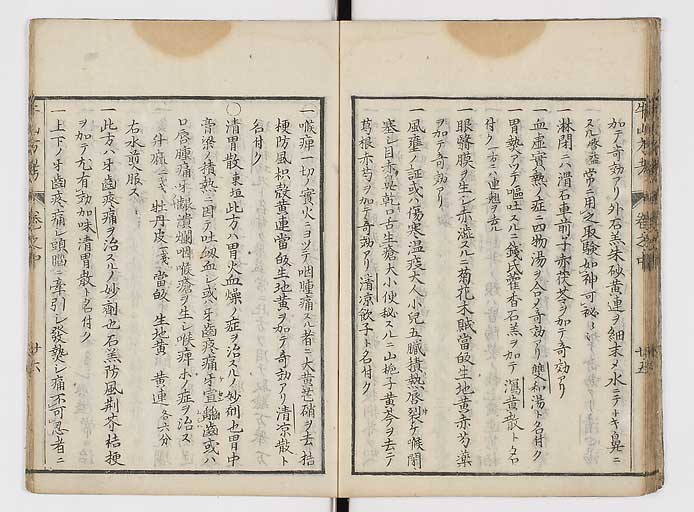 加テ奇効アリ外石羔朱砂黄連ヲ細末〆水ニテトキ鼻ニ
スル 常ニ用之取驗如神可秘〻
一淋閉ニハ滑石車前子赤茯苓ヲ加テ奇効アリ
一血虚實熱ノ症ニ四物湯ヲ合〆奇効アリ雙和湯ト名付ク
一胃熱アツテ嘔吐スルニ錢氏藿香石羔ヲ加テ瀉黄散トタ
付ク一方ニハ連翹ヲ去
一眼醫膜ヲ生シ赤澁スルニ菊花木賊當皈生地黄赤芍藥
ヲ加テ奇効アリ
一風壅ノ証或ハ傷寒温疫大人小兒五臓積熱唇裂ケ喉閉
塞シ目赤鼻乾口舌生瘡大小便秘スルニ山梔子黄芩ヲ去テ
葛根赤芍ヲ加テ奇効アリ清凉飲子ト名付ク
牛山方考 卷之中 廿五
一喉痺一切ノ實火ニヨツテ咽腫痛スル者ニ大黄芒硝ヲ去桔
梗防風枳殼黄連當皈生地黄ヲ加テ奇効アリ清凉散ト
名付ク
○清胃散東垣此方ハ胃火血燥ノ症ヲ治スルノ妙剤也胃中
膏梁ノ積熱ニ因テ吐衂血シ或ハ牙齒疼痛牙宣齲齒或ハ
口唇腫痛牙齦潰爛咽喉瘡ヲ生シ喉痺ホノ症ヲ治ス
升麻二戔 牡丹皮一戔 當皈 生地黄 黄連各六分
右水煎服ス
一此方ハ牙齒疼痛ヲ治スルノ妙劑也石羔防風荆芥桔梗
ヲ加テ尤有効加味清胃散ト名付ク
一上下ノ牙齒疼痛シ頭腦ニ牽引シ發熱シ痛不可忍者ニ
卷之中 廿六